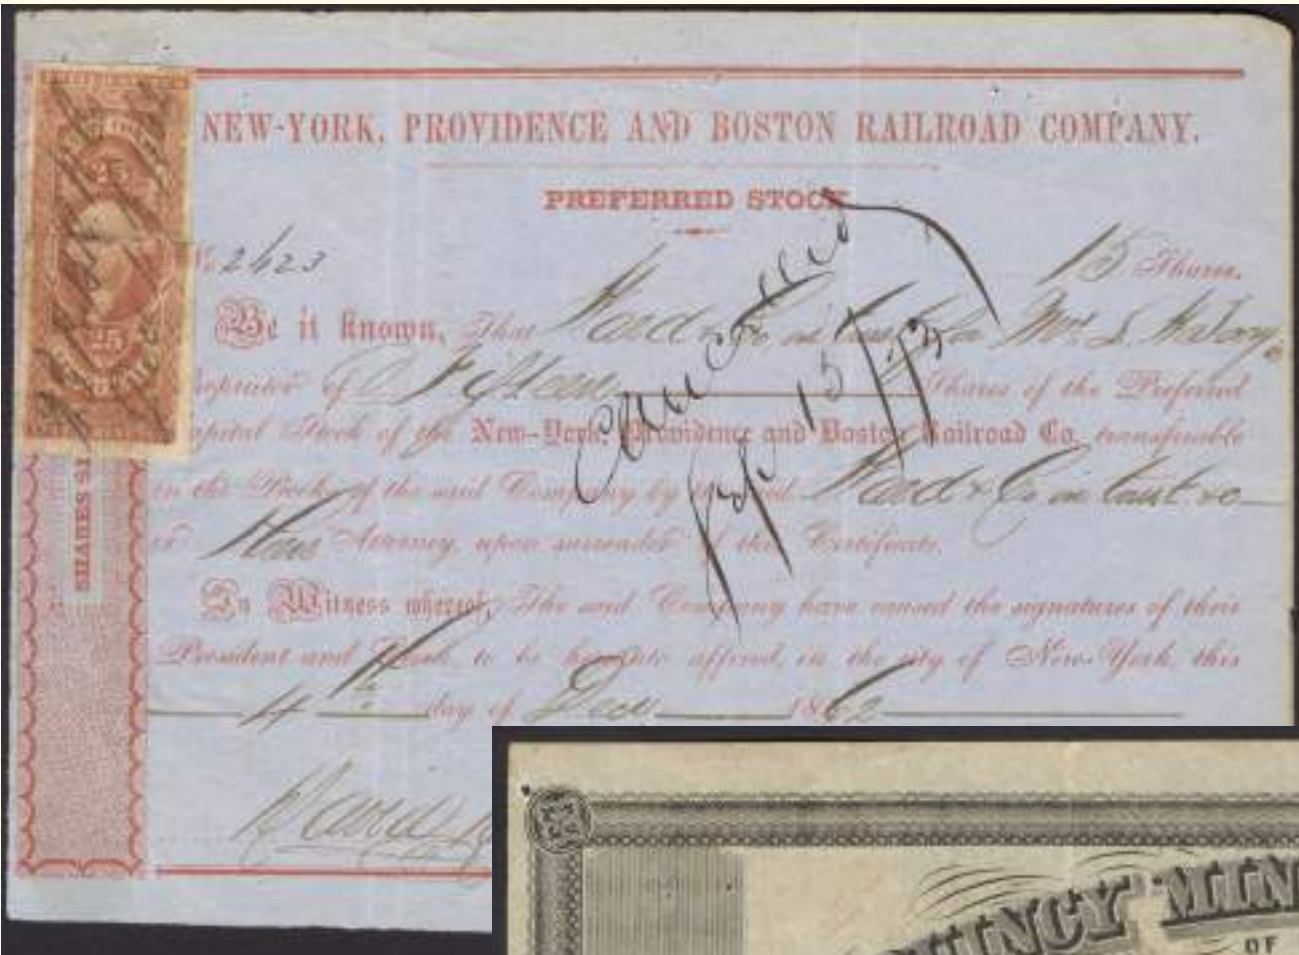 NEW-YORK, PROVIDENCE AND BOSTON RAILROAD COMPANY.
PREFERRED STOCK
25
No 2423
15 Shares.
Be it known, That Ward & Co in trust for Mrs S
25
proprietor of Fifteen Shares of the Preferred
Capital Stock of the New-York, Providence and Boston Railroad Co. transferable
on the Books of the said Company by the said Ward & Co in trust &c
or their Attorney, upon surrender of this Certificate.
Cancelled
15/73
SHARES
In Witness whereof, The said Company have caused the signatures of their
President and Clerk, to be hereunto affixed, in the city of New-York, this
4th day of Dec 1862
QUINCY MIN
OF